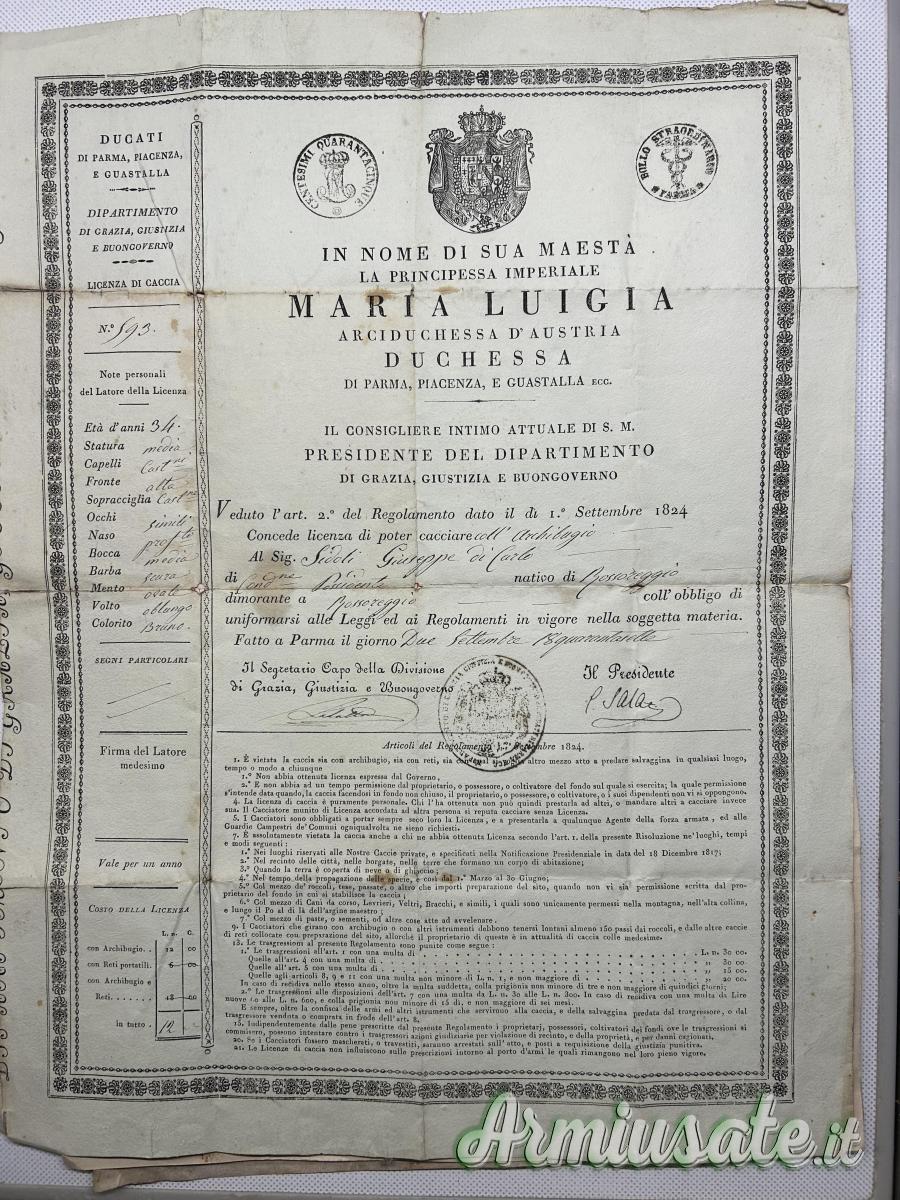 DUCATI
DI PARMA, PIACENZA,
E GUASTALLA
DIPARTIMENTO
DI GRAZIA, GIUSTIZIA
E BUONGOVERNO
LICENZA DI CACCIA
N.º 593.
Note personali
del Latore della Licenza
Età d'anni 34.
Statura media
Capelli Cast.ni
Fronte alta
Sopracciglia Cast.ne
Occhi simili
Naso profilato
Bocca media
Barba scura
Mento ovale
Volto oblungo
Colorito Bruno
SEGNI PARTICOLARI
Firma del Latore
medesimo
Vale per un anno
COSTO DELLA LICENZA
L. n. C.
con Archibugio. . 12 00
con Reti portatili. 6 00
con Archibugio e
Reti. . . . . . . 18 00
in tutto . 12
CENTESIMI QUARANTACINQUE
BOLLO STRAORDINARIO
PARMA
IN NOME DI SUA MAESTÀ
LA PRINCIPESSA IMPERIALE
MARIA LUIGIA
ARCIDUCHESSA D'AUSTRIA
DUCHESSA
DI PARMA, PIACENZA, E GUASTALLA ECC.
IL CONSIGLIERE INTIMO ATTUALE DI S. M.
PRESIDENTE DEL DIPARTIMENTO
DI GRAZIA, GIUSTIZIA E BUONGOVERNO
Veduto l'art. 2.º del Regolamento dato il dì 1.º Settembre 1824
Concede licenza di poter cacciare coll'Archibugio
Al Sig. Sidoli Giuseppe di Carlo
di cond.ne Possidente nativo di Bossoreggio
dimorante a Bossoreggio coll'obbligo di
uniformarsi alle Leggi ed ai Regolamenti in vigore nella soggetta materia.
Fatto a Parma il giorno Due Settembre
Il Segretario Capo della Divisione
di Grazia, Giustizia e Buongoverno
Il Presidente
Articoli del Regolamento 1.º Settembre 1824.
1. È vietata la caccia sia con archibugio, sia con reti, sia con qual altro mezzo atto a predare salvaggina in qualsiasi luogo,
tempo o modo a chiunque
1.º Non abbia ottenuta licenza espressa dal Governo,
2.º E non abbia ad un tempo permissione dal proprietario, o possessore, o coltivatore del fondo sul quale si esercita; la quale permissione
s'intende data quando, la caccia facendosi in fondo non chiuso, il proprietario, o possessore, o coltivatore, o i suoi dipendenti non vi si oppongono.
4. La licenza di caccia è puramente personale. Chi l'ha ottenuta non può quindi prestarla ad altri, o mandare altri a cacciare invece
sua. Il Cacciatore munito di Licenza accordata ad altra persona si reputa cacciare senza Licenza.
5. I Cacciatori sono obbligati a portar sempre seco loro la Licenza, e a presentarla a qualunque Agente della forza armata, ed alle
Guardie Campestri de' Comuni ogniqualvolta ne sieno richiesti.
7. È assolutamente vietata la caccia anche a chi ne abbia ottenuta Licenza secondo l'art. 1. della presente Risoluzione ne' luoghi, tempi
e modi seguenti :
1.º Nei luoghi riservati alle Nostre Caccie private, e specificati nella Notificazione Presidenziale in data del 18 Dicembre 1817;
2.º Nel recinto delle città, nelle borgate, nelle terre che formano un corpo di abitazione;
3.º Quando la terra è coperta di neve o di ghiaccio;
4.º Nel tempo della propagazione delle specie, e così dal 1.º Marzo al 30 Giugno;
5.º Col mezzo de' roccoli, tese, passate, o altro che importi preparazione del sito, quando non vi sia permissione scritta dal pro-
prietario del fondo in cui si stabilisce la caccia;
6.º Col mezzo di Cani da corso, Levrieri, Veltri, Bracchi, e simili, i quali sono unicamente permessi nella montagna, nell'alta collina,
e lungo il Po al di là dell'argine maestro;
7.º Col mezzo di paste, o sementi, od altre cose atte ad avvelenare.
9. I Cacciatori che girano con archibugio o con altri istrumenti debbono tenersi lontani almeno 150 passi dai roccoli, e dalle altre caccie
di reti collocate con preparazione del sito, allorchè il proprietario di queste è in attualità di caccia colle medesime.
13. Le trasgressioni al presente Regolamento sono punite come segue :
1.º Le trasgressioni all'art. 1 con una multa di . . . . . L. n. 30 00.
Quelle all'art. 4 con una multa di . . . . . „ 30 00.
Quelle all'art. 5 con una multa di . . . . . „ 15 00.
Quelle agli articoli 8, 9 e 11 con una multa non minore di L. n. 1, e non maggiore di . . . „ 20 00.
In caso di recidiva nello stesso anno, oltre la multa suddetta, colla prigionia non minore di tre e non maggiore di quindici giorni;
2.º Le trasgressioni alle disposizioni dell'art. 7 con una multa da L. n. 30 alle L. 300. In caso di recidiva con una multa da Lire
nuove 60 alle L. n. 600, e colla prigionia non minore di 15 dì, e non maggiore di sei mesi.
E sempre, oltre la confisca delle armi ed altri istrumenti che servirono alla caccia, e della salvaggina predata dal trasgressore, o dal
trasgressore venduta o comprata in frode dell'art. 8.
15. Independentemente dalle pene prescritte dal presente Regolamento i proprietarj, possessori, coltivatori dei fondi ove le trasgressioni si
commisero, possono intentare contro i trasgressori azioni giudiziarie per violazione di recinto, e della proprietà, e per danni cagionati.
20. Se i Cacciatori fossero mascherati, o travestiti, saranno arrestati sull'atto, e posta a requisizione della giustizia punitiva.
21. Le Licenze di caccia non influiscono sulle prescrizioni intorno al porto d'armi le quali rimangono nel loro pieno vigore.
Armiusate.it